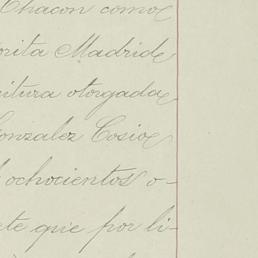 Chacon como
rita Madrid
itura otorgada
onzalez Cosio
ochocientos o-
te que por li-